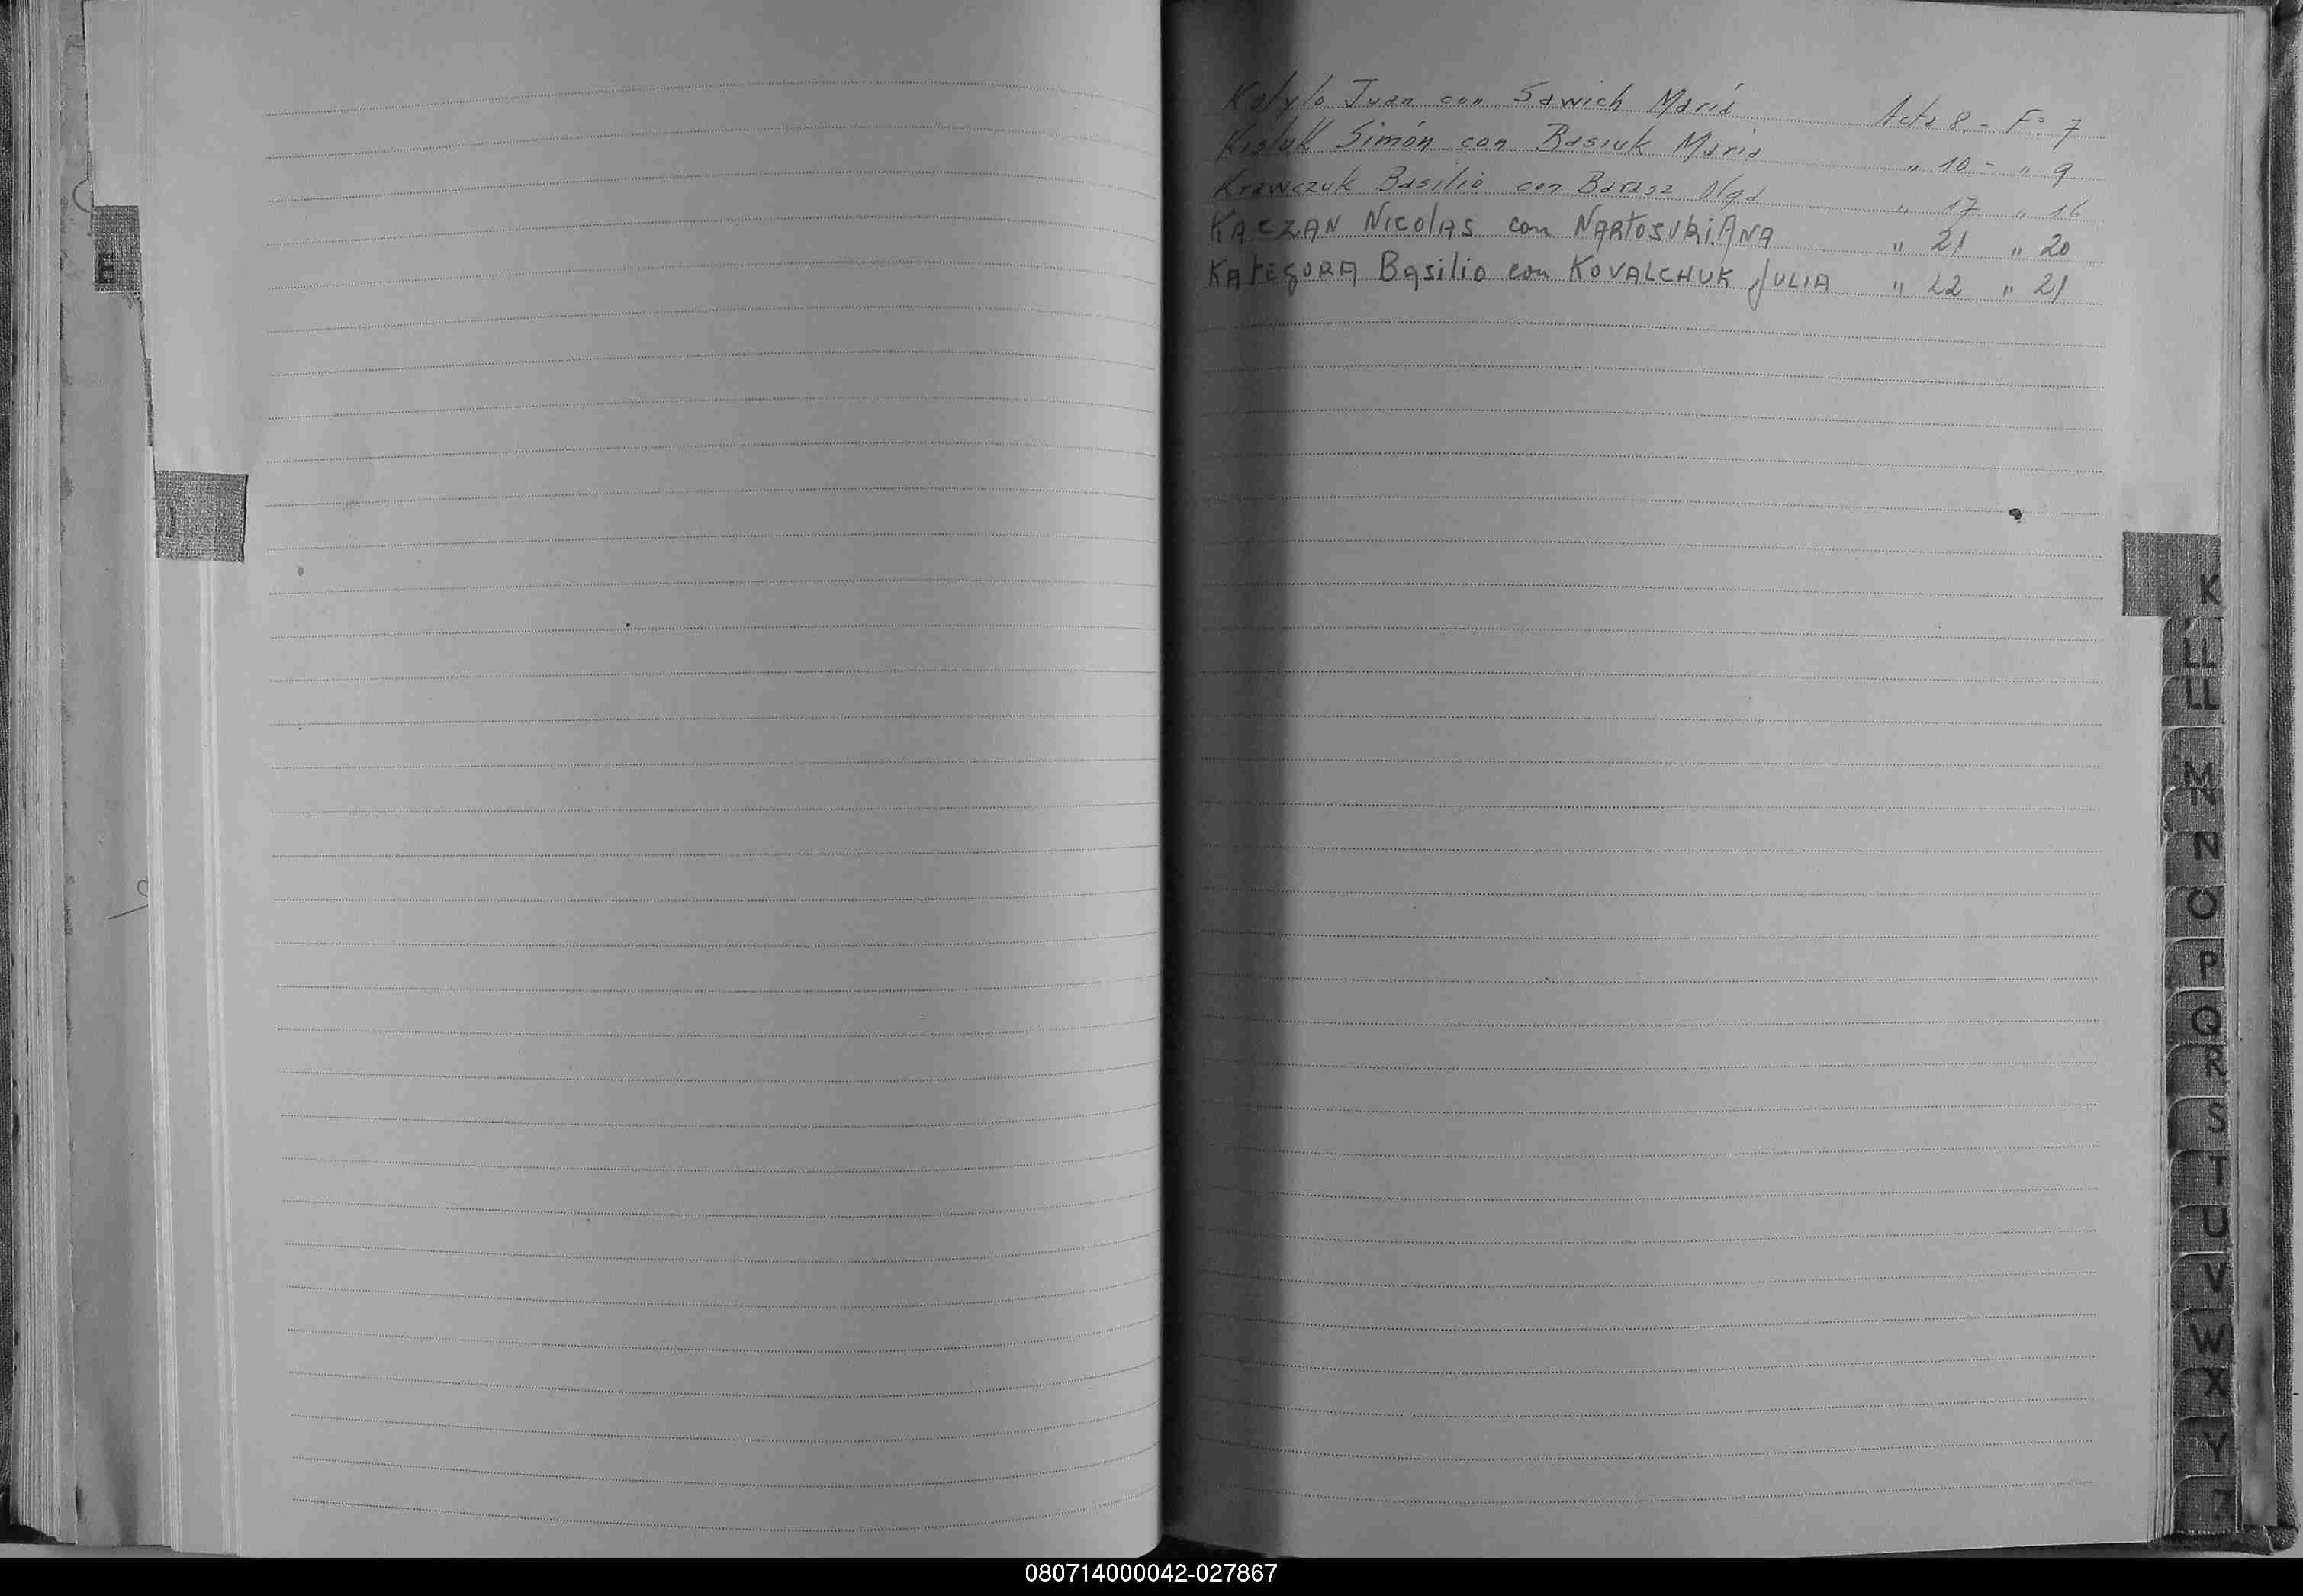 E
J
Kotylo Juan con Sawich María Acta 8.- F° 7
Kisluk Simón con Basiuk María " 10 - " 9
Krawczuk Basilio con Barasz Olga " 17 " 16
KACZAN NicolAS con NARtosukiANA " 21 " 20
KAtEgORA Basilio con KOVALCHUK JULIA " 22 " 21
K
LL
M
N
N
O
P
Q
R
S
T
U
V
W
X
Y
Z
080714000042-027867